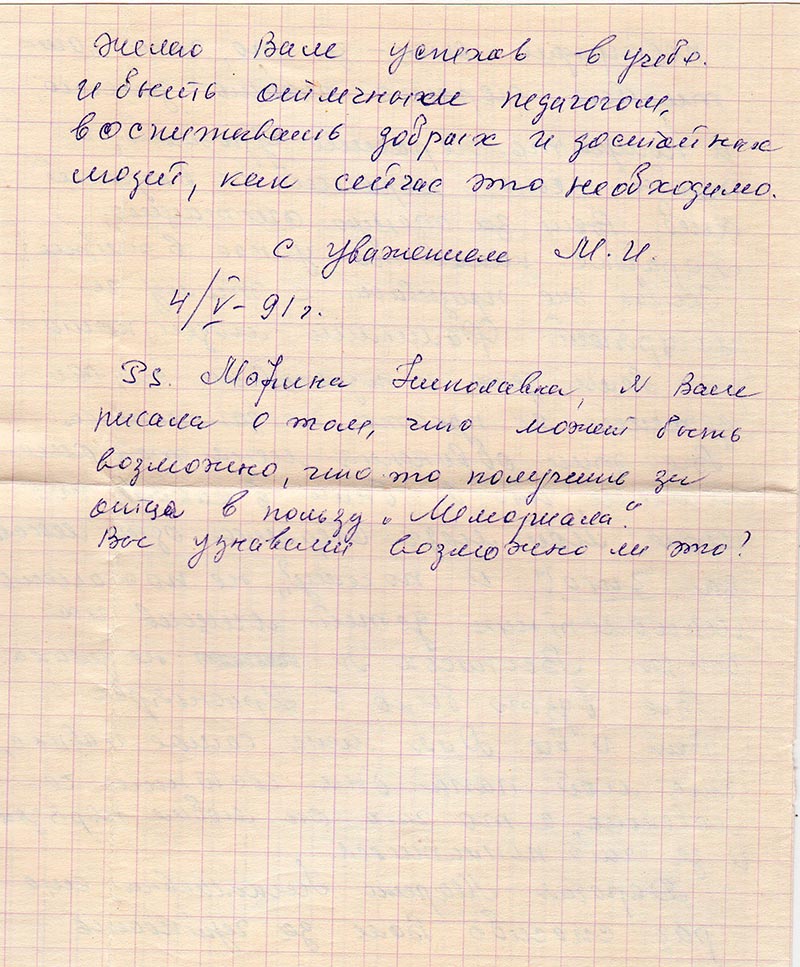 Желаю Вам успехов в учебе.
и быть отличным педагогом,
воспитывать добрых и достойных
людей, как сейчас это необходимо.
С уважением М. И.
4/V - 91 г.
PS. Марина Николавна, я Вам
писала о том, что может быть
возможно, что то получить за
отца в пользу „Мемориала".
Вы узнавали возможно ли это?